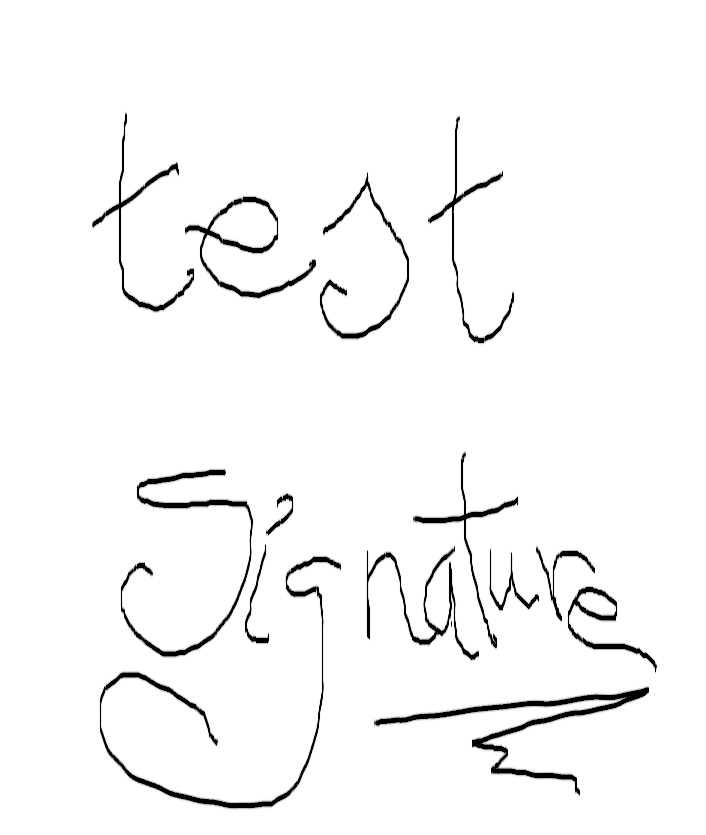 test
Signature